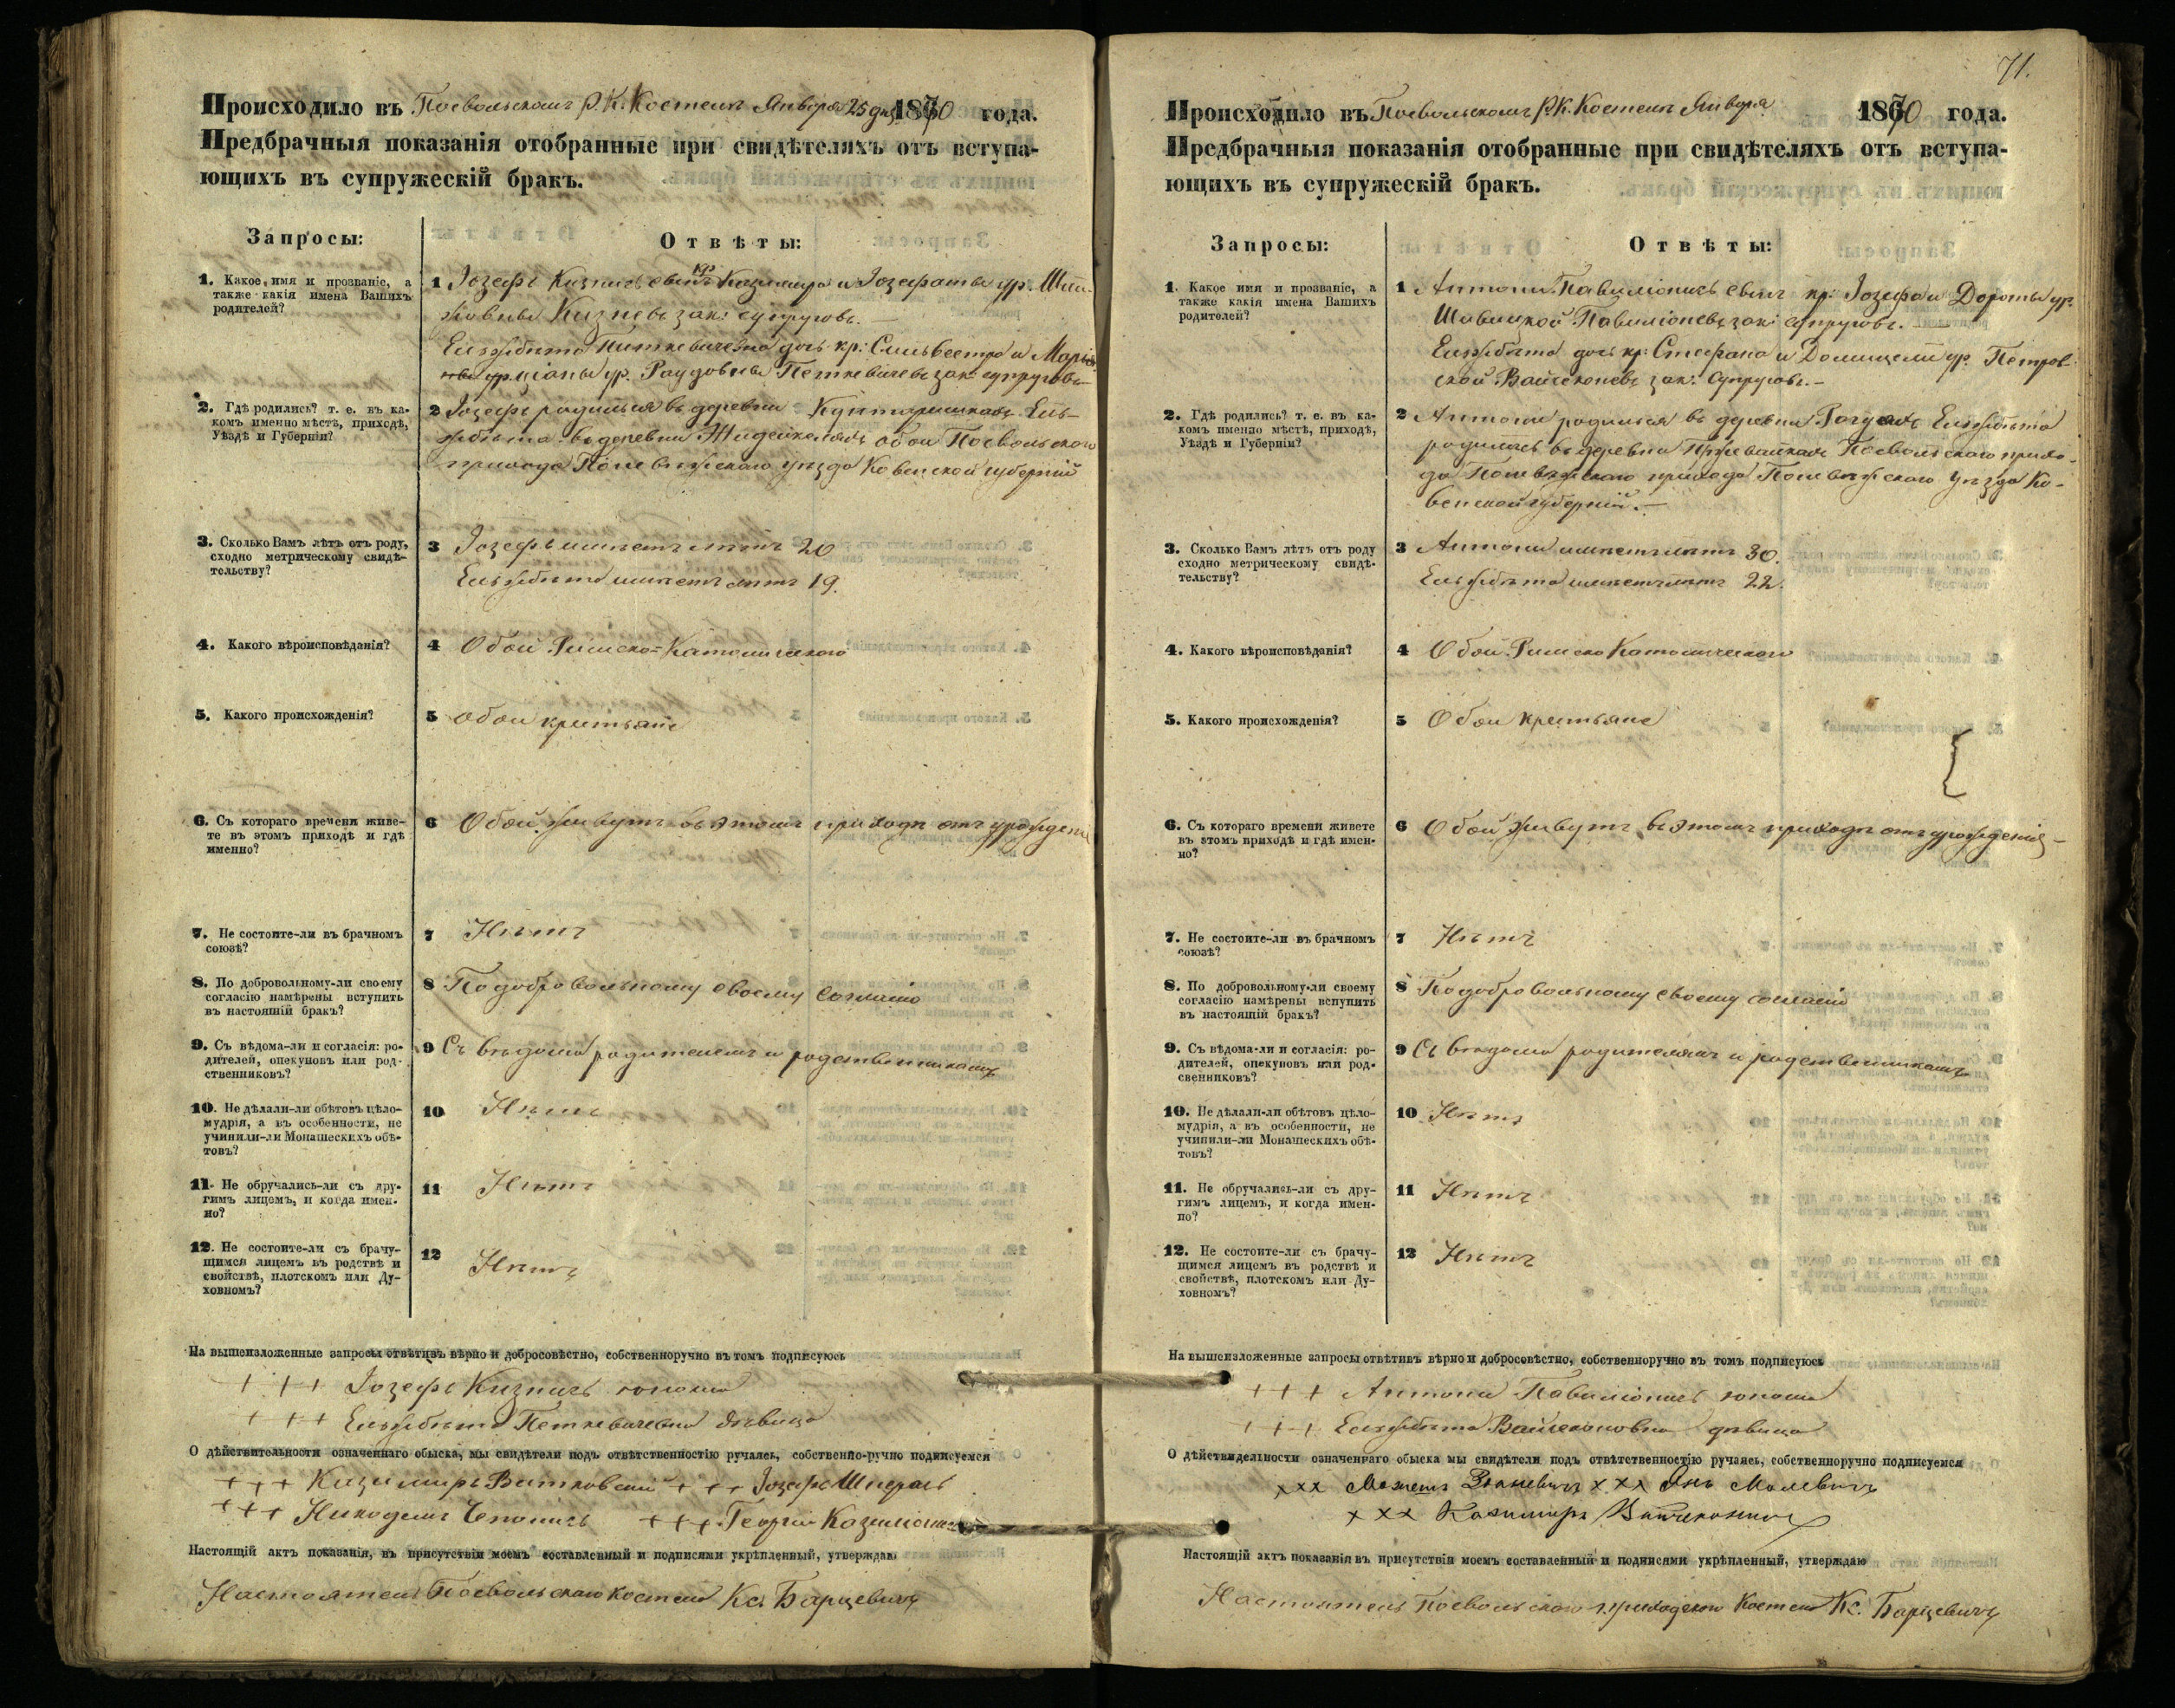 Происходило въ Посвольскомъ Р. К. Костелѣ Января 25 дня 1870 года.
Предбрачныя показанія отобранные при свидѣтеляхъ отъ вступа-
ющихъ въ супружескій бракъ.
Запросы:
Отвѣты:
1. Какое имя и прозваніе, а
также какія имена Вашихъ
родителей?
1 Іозефъ Кизнисъ сынъ кр Казимира и Іозефаты ур.
Кизневъ зак: супруговъ.
Ельжбѣта Питкевичевна дочь кр: Сильвестра и Марі-
ціаны ур. Раудовны Петкевичевъ зак: супруговъ
2. Гдѣ родились? т. е. въ ка-
комъ именно мѣстѣ, приходѣ,
Уѣздѣ и Губерніи?
2 Іозефъ родился въ деревни Ель-
жбѣта въ деревни Жидейкеляхъ обои Посвольскаго
прихода Поневѣжскаго уѣзда Ковенской губерніи
3. Сколько Вамъ лѣтъ отъ роду,
сходно метрическому свидѣ-
тельству?
3 Іозефъ имѣетъ лѣтъ 20
Ельжбѣта имѣетъ лѣтъ 19.
4. Какого вѣроисповѣданія?
4 Обои Римско-Католическаго
5. Какого происхожденія?
5 Обои крестьяне
6. Съ котораго времени живе-
те въ этомъ приходѣ и гдѣ
именно?
6 Обои живутъ въ этомъ приходѣ отъ урожденія
7. Не состоите-ли въ брачномъ
союзѣ?
7 Нѣтъ
8. По добровольному-ли своему
согласію намѣрены вступить
въ настоящій бракъ?
8 По добровольному своему согласію
9. Съ вѣдома-ли и согласія: ро-
дителей, опекуновъ или род-
ственниковъ?
9 Съ вѣдома родителемъ и родственникамъ
10. Не дѣлали-ли обѣтовъ цѣло-
мудрія, а въ особенности, не
учинили-ли Монашескихъ обѣ-
товъ?
10 Нѣтъ
11. Не обручались-ли съ дру-
гимъ лицемъ, и когда имен-
но?
11 Нѣтъ
12. Не состоите-ли съ брачу-
щимся лицемъ въ родствѣ и
свойствѣ, плотскомъ или Ду-
ховномъ?
12 Нѣтъ
На вышеизложенные запросы отвѣтивъ вѣрно и добросовѣстно, собственноручно въ томъ подписуюсь
+++ Іозефъ Кизнисъ юноша
+++ Ельжбѣта Петкевичевна дѣвица
О дѣйствительности означеннаго обыска, мы свидѣтели подъ отвѣтственностію ручаясь, собственно-ручно подписуемся
+++ Казимиръ Витковский +++ Іозефъ
+++ Никодемъ +++ Георгій
Настоящій актъ показанія, въ присутствіи моемъ составленный и подписями укрѣпленный, утверждаю
Настоятель Посвольскаго костела Кс. Барцевичъ
71.
Происходило въ Посвольскомъ Р. К. Костелѣ Января 1870 года.
Предбрачныя показанія отобранные при свидѣтеляхъ отъ вступа-
ющихъ въ супружескій бракъ.
Запросы:
Отвѣты:
1. Какое имя и прозваніе, а
также какія имена Вашихъ
родителей?
1 Антони Павиліонисъ сынъ кр: Іозефа и Дороты ур.
Павиліоневъ зак: супруговъ.
Ельжбѣта дочь кр: Стефана и Домицели ур. Петров-
ской Вайчеконевъ зак: супруговъ.
2. Гдѣ родились? т. е. въ ка-
комъ именно мѣстѣ, приходѣ,
Уѣздѣ и Губерніи?
2 Антони родился въ деревни Ельжбѣта
родилась въ деревни Посвольскаго прихо-
да Поневѣжскаго прихода Поневѣжскаго уѣзда Ко-
венской губерніи.
3. Сколько Вамъ лѣтъ отъ роду
сходно метрическому свидѣ-
тельству?
3 Антони имѣетъ лѣтъ 30.
Ельжбѣта имѣетъ лѣтъ 22.
4. Какого вѣроисповѣданія?
4 Обои Римско Католическаго
5. Какого происхожденія?
5 Обои крестьяне
6. Съ котораго времени живете
въ этомъ приходѣ и гдѣ имен-
но?
6 Обои живутъ въ этомъ приходѣ отъ урожденія
7. Не состоите-ли въ брачномъ
союзѣ?
7 Нѣтъ
8. По добровольному-ли своему
согласію намѣрены вступить
въ настоящій бракъ?
8 По добровольному своему согласію
9. Съ вѣдома-ли и согласія: ро-
дителей, опекуновъ или род-
свенниковъ?
9 Съ вѣдома родителямъ и родственникамъ
10. Не дѣлали-ли обѣтовъ цѣло-
мудрія, а въ особенности, не
учинили-ли Монашескихъ обѣ-
товъ?
10 Нѣтъ
11. Не обручались-ли съ дру-
гимъ лицемъ, и когда имен-
но?
11 Нѣтъ
12. Не состоите-ли съ брачу-
щимся лицемъ въ родствѣ и
свойствѣ, плотскомъ или Ду-
ховномъ?
12 Нѣтъ
На вышеизложенные запросы отвѣтивъ вѣрно и добросовѣстно, собственноручно въ томъ подписуюсь
+++ Антони Павиліонисъ юноша
+++ Ельжбѣта Вайчеконовна дѣвица
О дѣйствидельности означеннаго обыска мы свидѣтели подъ отвѣтственностію ручаясь, собственноручно подписуемся
××× ××× Янъ Малевичъ
××× Казимиръ
Настоящій актъ показанія въ присутствіи моемъ составленный и подписями укрѣпленный, утверждаю
Настоятель Посвольскаго приходскаго Костела Кс. Барцевичъ